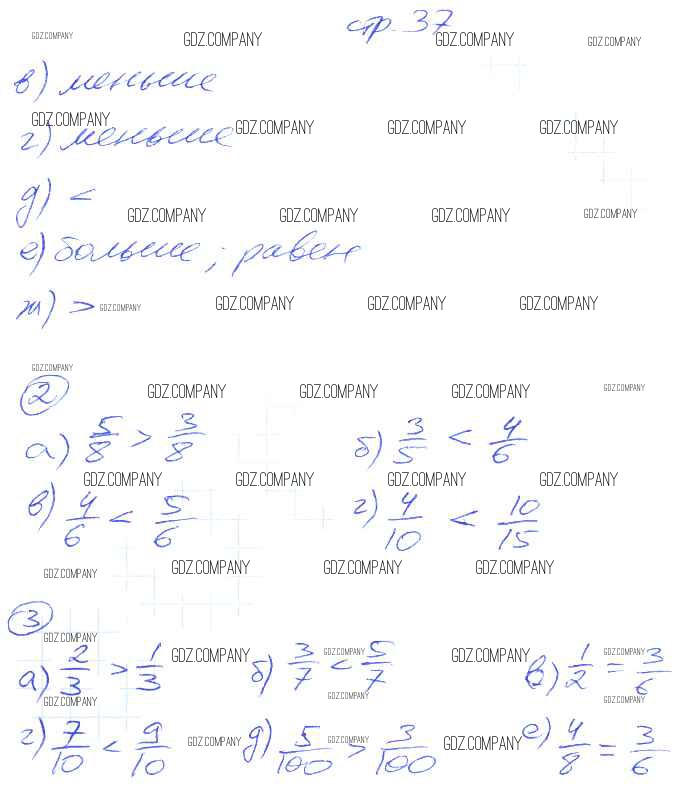 стр. 37
GDZ.COMPANY GDZ.COMPANY GDZ.COMPANY GDZ.COMPANY
в) меньше
GDZ.COMPANY GDZ.COMPANY GDZ.COMPANY GDZ.COMPANY
г) меньше
д) <
GDZ.COMPANY GDZ.COMPANY GDZ.COMPANY GDZ.COMPANY
е) больше; равен
ж) > GDZ.COMPANY GDZ.COMPANY GDZ.COMPANY GDZ.COMPANY
GDZ.COMPANY
2 GDZ.COMPANY GDZ.COMPANY GDZ.COMPANY GDZ.COMPANY
а) 5/8 > 3/8 б) 3/5 < 4/6
GDZ.COMPANY GDZ.COMPANY GDZ.COMPANY GDZ.COMPANY
в) 4/6 < 5/6 г) 4/10 < 10/15
GDZ.COMPANY GDZ.COMPANY GDZ.COMPANY GDZ.COMPANY
3
GDZ.COMPANY
а) 2/3 > 1/3 GDZ.COMPANY б) 3/7 < 5/7 GDZ.COMPANY GDZ.COMPANY в) 1/2 = 3/6 GDZ.COMPANY
GDZ.COMPANY GDZ.COMPANY GDZ.COMPANY
г) 7/10 < 9/10 GDZ.COMPANY д) 5/100 > 3/100 GDZ.COMPANY GDZ.COMPANY е) 4/8 = 3/6